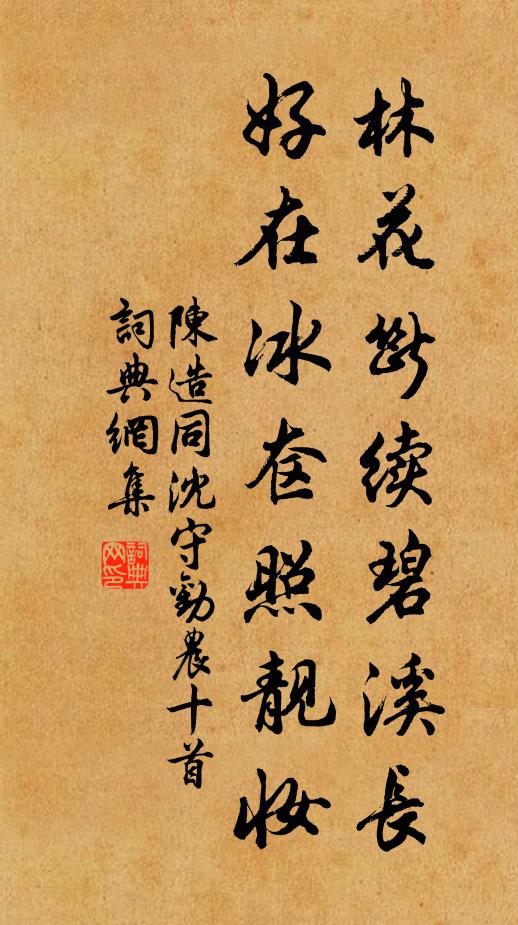 林花断续碧溪長
好在冰奁照靚妆
陳造同沈守勸農十首
詞典網集
詞典網印